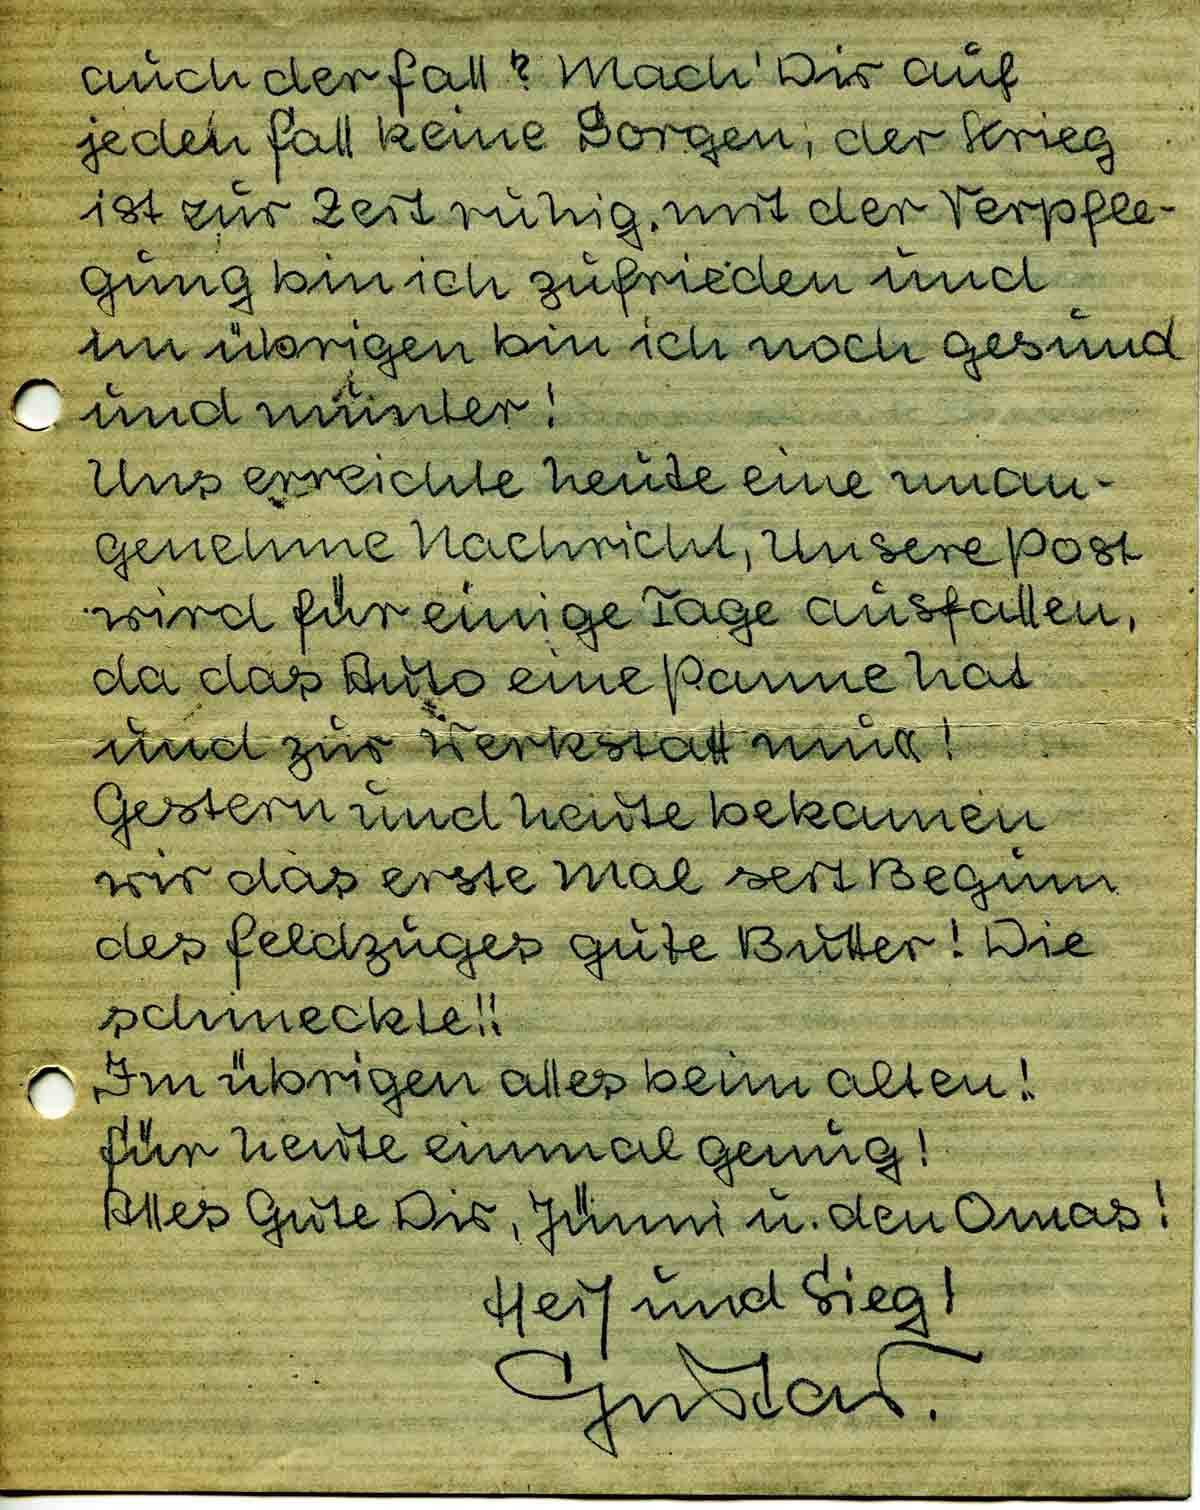 auch der Fall? Mach' Dir auf
jeden Fall keine Sorgen, der Krieg
ist zur Zeit ruhig, mit der Verpfle-
gung bin ich zufrieden und
im übrigen bin ich noch gesund
und munter!
Uns erreichte heute eine unan-
genehme Nachricht, unsere Post
wird für einige Tage ausfallen,
da das Auto eine Panne hat
und zur Werkstatt muß!
Gestern und heute bekamen
wir das erste Mal seit Beginn
des Feldzuges gute Butter! Die
schmeckte!!
Im übrigen alles beim alten!
Für heute einmal genug!
Alles Gute Dir, Jünni u. den Omas!
Heil und Sieg!
Gustav.